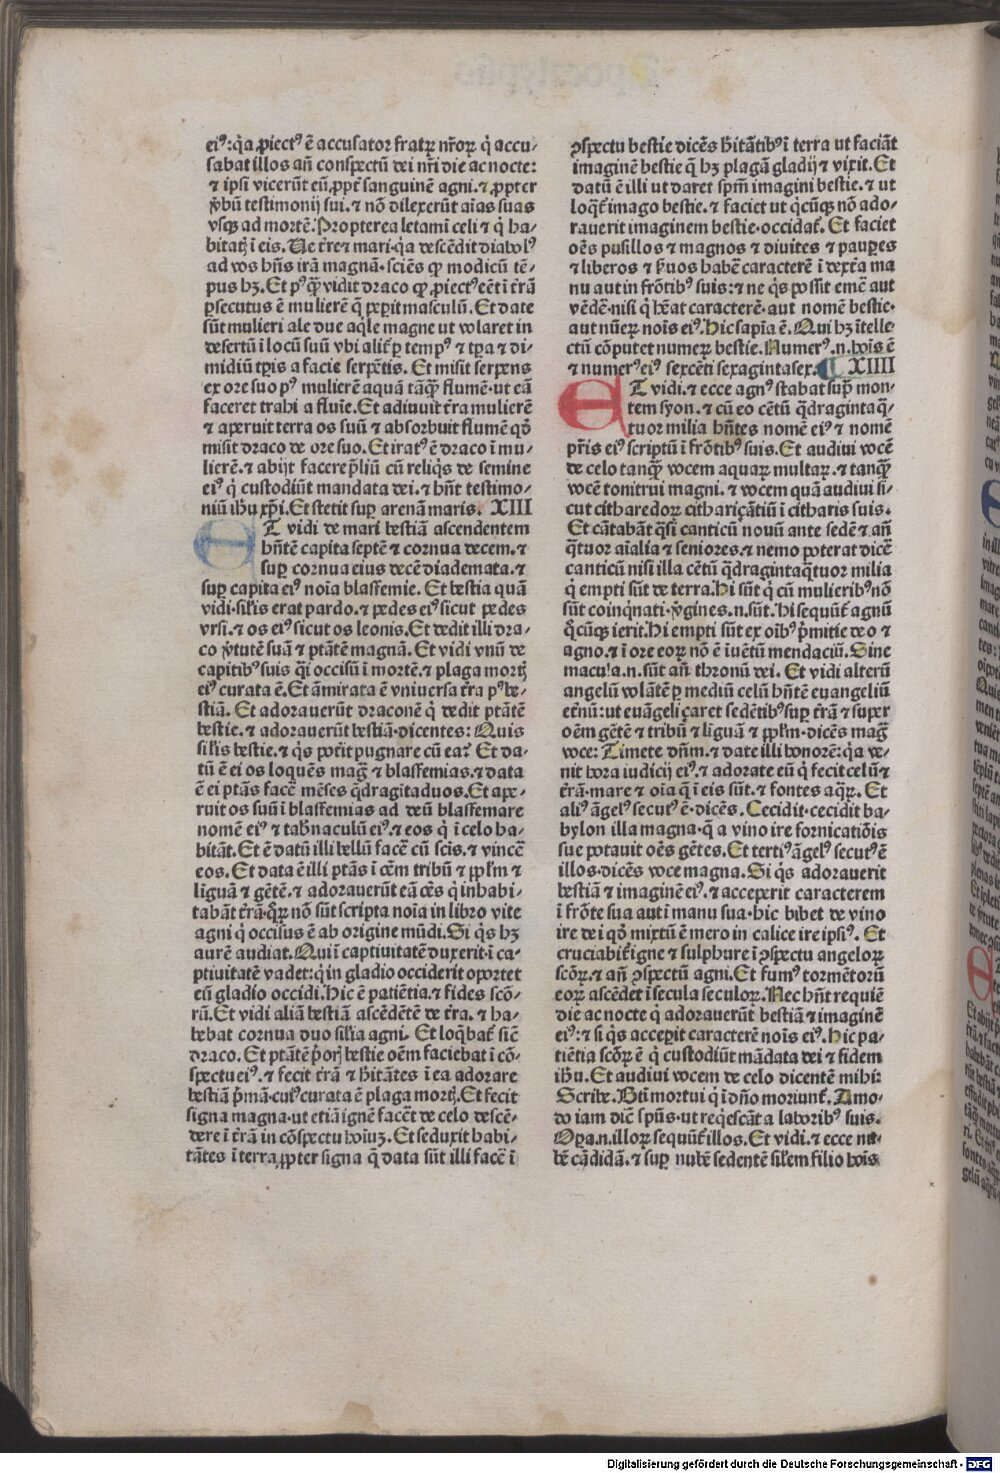 eiꝰ:q̄a ꝓiectꝰ ē accusator fratꝝ nr̄oꝝ q̇ accu⸗
sabat illos an̄ conspectū dei nr̄i die ac nocte:
⁊ ipsi vicerūt eū ꝓpt̄ sanguinē agni.⁊ ꝓpter
v̄bū testimonij sui.⁊ nō dilexerūt aīas suas
vsqꝫ ad mortē. Propterea letamī celi ⁊ q̇ ha⸗
bitatꝭ ī eis. Ue t̄re ⁊ mari·q̄a descēdit diabolꝰ
ad vos hn̄s irā magnā·sciēs ꝙ modicū tē⸗
pus hꝫ. Et pꝰq̄ꝫ vidit draco ꝙ ꝓiectꝰ eēt ī t̄rā
ꝑsecutus ē mulierē q̄ peꝑit masculū. Et date
sūt mulieri ale due aq̇le magne ut volaret in
desertū ī locū suū vbi alit̄ ꝑ tempꝰ ⁊ tꝑa ⁊ di⸗
midiū tꝑis a facie serpētis. Et misit serpens
ex ore suo pꝰ mulierē aquā tāq̄ꝫ flumē·ut eā
faceret trahi a fluīe. Et adiuuit t̄ra mulierē
⁊ aperuit terra os suū ⁊ absorbuit flumē qd̄
misit draco de ore suo. Et iratꝰ ē draco ī mu⸗
lierē.⁊ abijt facere p̄liū cū reliq̇s de semine
eiꝰ q̇ custodiūt mandata dei.⁊ hn̄t testimo⸗
niū ih̄u xp̄i. Et stetit suꝑ arenā maris. XIII
ET vidi de mari bestiā ascendentem
hn̄tē capita septē ⁊ cornua decem.⁊
suꝑ cornua eius decē diademata.⁊
suꝑ capita eiꝰ noīa blasfemie. Et bestia quā
vidi·sil̄is erat pardo.⁊ pedes eiꝰ sicut pedes
vrsi.⁊ os eiꝰ sicut os leonis. Et dedit illi dra⸗
co v̄tutē suā ⁊ ptātē magnā. Et vidi vnū de
capitibꝰ suis q̄i occisū ī mortē.⁊ plaga mortꝭ
eiꝰ curata ē. Et am̄irata ē vniuersa t̄ra pꝰ be⸗
stiā. Et adorauerūt draconē q̇ dedit ptātē
bestie.⁊ adorauerūt bestiā·dicentes: Quis
sil̄is bestie.⁊ q̇s pot̄it pugnare cū ea? Et da⸗
tū ē ei os loquēs maḡ ⁊ blasfemias.⁊ data
ē ei ptās facē mēses q̄dragītaduos. Et ape⸗
ruit os suū ī blasfemias ad deū blasfemare
nomē eiꝰ ⁊ tab̄naculū eiꝰ.⁊ eos q̇ ī celo ha⸗
bitāt. Et ē datū illi bellū facē cū sc̄is.⁊ vincē
eos. Et data ē illi ptās ī oēm tribū ⁊ ppl̄m ⁊
liguā ⁊ gētē.⁊ adorauerūt eā oēs q̇ inhabi⸗
tabāt t̄rā·q̄ꝝ nō sūt scripta noīa in libro vite
agni q̇ occisus ē ab origine mūdi. Si q̇s hꝫ
aurē audiat. Qui ī captiuitatē duxerit·ī ca⸗
ptiuitatē vadet:q̇ in gladio occiderit oportet
eū gladio occidi. Hic ē patiētia.⁊ fides scō⸗
rū. Et vidi aliā bestiā ascēdētē de t̄ra. ⁊ ha⸗
bebat cornua duo sil̄ia agni. Et loq̄bat̄ sic̄
draco. Et ptātē p̄orꝭ bestie oēm faciebat ī cō⸗
spectu eiꝰ.⁊ fecit t̄rā ⁊ h̄itātes ī ea adorare
bestiā p̄mā·cuiꝰ curata ē plaga mortꝭ. Et fecit
signa magna·ut etiā ignē facēt de celo descē⸗
dere ī t̄rā in cōspectu hoīuꝫ. Et seduxit habi⸗
tātes ī terra ꝓpter signa q̄ data sūt illi facē ī
ꝯspectu bestie dicēs h̄itātibꝰ ī terra ut faciāt
imaginē bestie q̄ hꝫ plagā gladij ⁊ vixit. Et
datū ē illi ut daret spm̄ imagini bestie.⁊ ut
loq̄t̄ imago bestie.⁊ faciet ut q̇cūqꝫ nō ado⸗
rauerit imaginem bestie·occidat̄. Et faciet
oēs pusillos ⁊ magnos ⁊ diuites ⁊ pauꝑes
⁊ liberos ⁊ s̄uos habē caracterē ī dext̄a ma
nu aut in frōtibꝰ suis:⁊ ne q̇s possit emē aut
vēdē·nisi q̇ h̄eat caracterē·aut nomē bestie·
aut nūeꝝ noīs eiꝰ. Hic sapīa ē. Qui hꝫ ītelle⸗
ctū cōputet numeꝝ bestie. Numerꝰ.n.hoīs ē
⁊ numerꝰ eiꝰ sexcēti sexagintasex. XIIII
ET vidi.⁊ ecce agnꝰ stabat sup̄ mon⸗
tem syon.⁊ cū eo cētū q̄dragintaq̄⸗
tuor milia hn̄tes nomē eiꝰ ⁊ nomē
pr̄is eiꝰ scriptū ī frōtibꝰ suis. Et audiui vocē
de celo tanq̄ꝫ vocem aquaꝝ multaꝝ.⁊ tanq̄ꝫ
vocē tonitrui magni.⁊ vocem quā audiui si⸗
cut citharedoꝝ citharizātiū ī citharis suis.
Et cātabāt q̄si canticū nouū ante sedē ⁊ an̄
q̄tuor aīalia ⁊ seniores.⁊ nemo poterat dicē
canticū nisi illa cētū q̄dragintaq̄tuor milia
q̇ empti sūt de terra. Hi sūt q̇ cū mulieribꝰ nō
sūt coinq̇nati·v̄gines.n.sūt. Hi sequūt̄ agnū
q̊cūqꝫ ierit. Hi empti sūt ex oībꝰ p̄mitie deo ⁊
agno.⁊ ī ore eoꝝ nō ē īuētū mendaciū. Sine
macula.n.sūt an̄ thronū dei. Et vidi alterū
angelū volātē ꝑ mediū celū hn̄tē euangeliū
et̄nū:ut euāgelizaret sedētibꝰ suꝑ t̄rā ⁊ super
oēm gētē ⁊ tribū ⁊ liguā ⁊ ppl̄m·dicēs maḡ
voce: Timete dn̄m.⁊ date illi honorē:q̄a ve⸗
nit hora iudicij eiꝰ.⁊ adorate eū q̇ fecit celū ⁊
t̄rā·mare ⁊ oīa q̄ ī eis sūt.⁊ fontes aq̄ꝝ. Et
aliꝰ āgelꝰ secutꝰ ē·dicēs. Cecidit·cecidit ba⸗
bylon illa magna·q̄ a vino ire fornicatiōis
sue potauit oēs gētes. Et tertiꝰ āgelꝰ secutꝰ ē
illos·dicēs voce magna. Si q̇s adorauerit
bestiā ⁊ imaginē eiꝰ.⁊ acceperit caracterem
ī frōte sua aut ī manu sua·hic bibet de vino
ire dei qd̄ mixtū ē mero in calice ire ipsiꝰ. Et
cruciabit̄ igne ⁊ sulphure ī ꝯspectu angeloꝝ
scōꝝ.⁊ an̄ ꝯspectū agni. Et fumꝰ tormētorū
eoꝝ ascēdet ī secula seculoꝝ. Nec hn̄t requiē
die ac nocte q̇ adorauerūt bestiā ⁊ imaginē
eiꝰ:⁊ si q̇s acceꝑit caracterē noīs eiꝰ. Hic pa⸗
tiētia scōꝝ ē q̇ custodiūt mādata dei ⁊ fidem
ih̄u. Et audiui vocem de celo dicentē mihi:
Scribe. Bt̄i mortui q̇ ī dn̄o moriunt̄. Amo⸗
do iam dic̄ spūs·ut req̇escāt a laboribꝰ suis.
Oꝑa.n.illoꝝ sequūt̄ illos. Et vidi.⁊ ecce nu⸗
bē cādidā.⁊ suꝑ nubē sedentē sil̄em filio hoīs
Digitalisierung gefördert durch die Deutsche Forschungsgemeinschaft - DFG